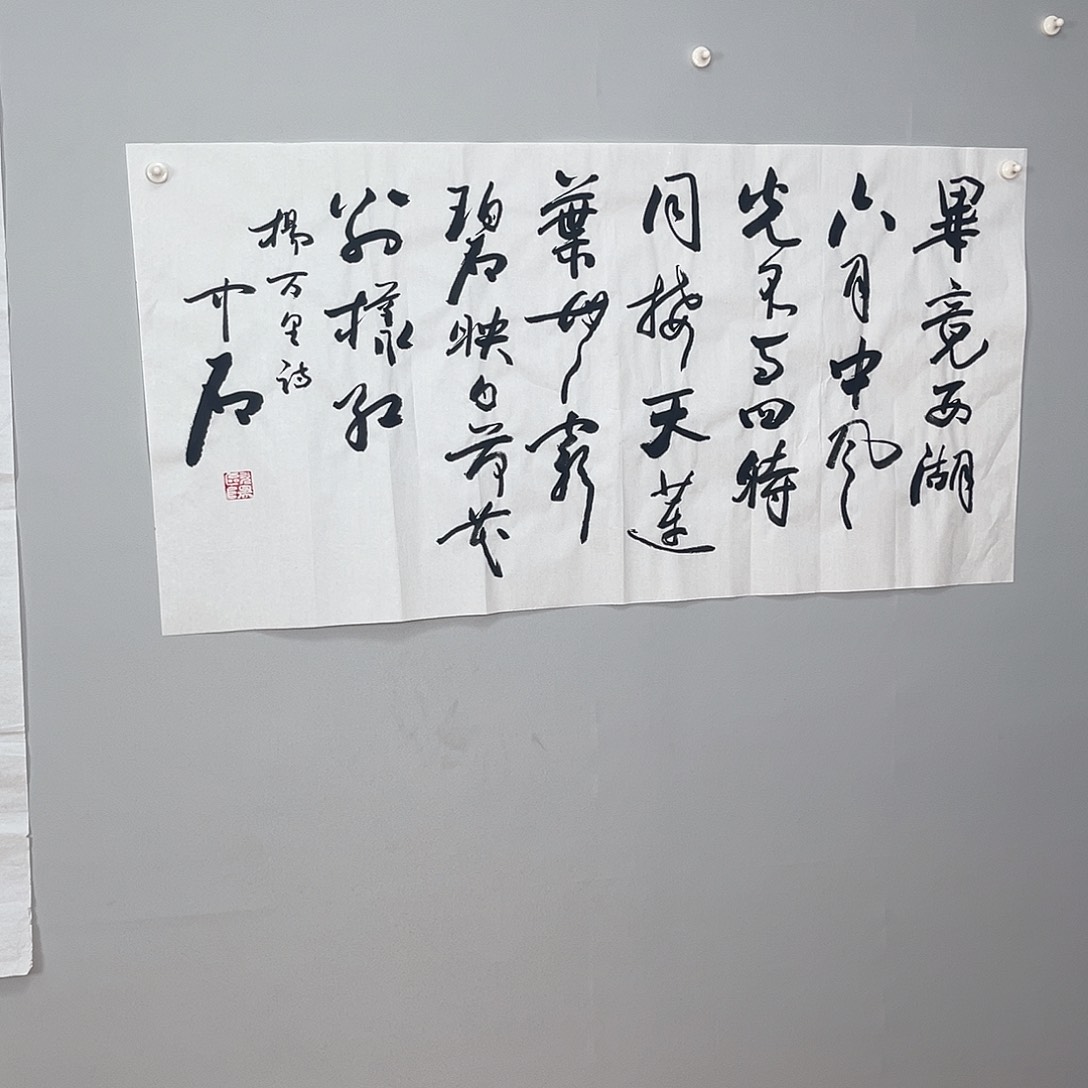 畢竟西湖
六月中風
光不与四時
同接天蓮
葉無窮
碧映日荷花
別樣紅
楊万里詩
中石